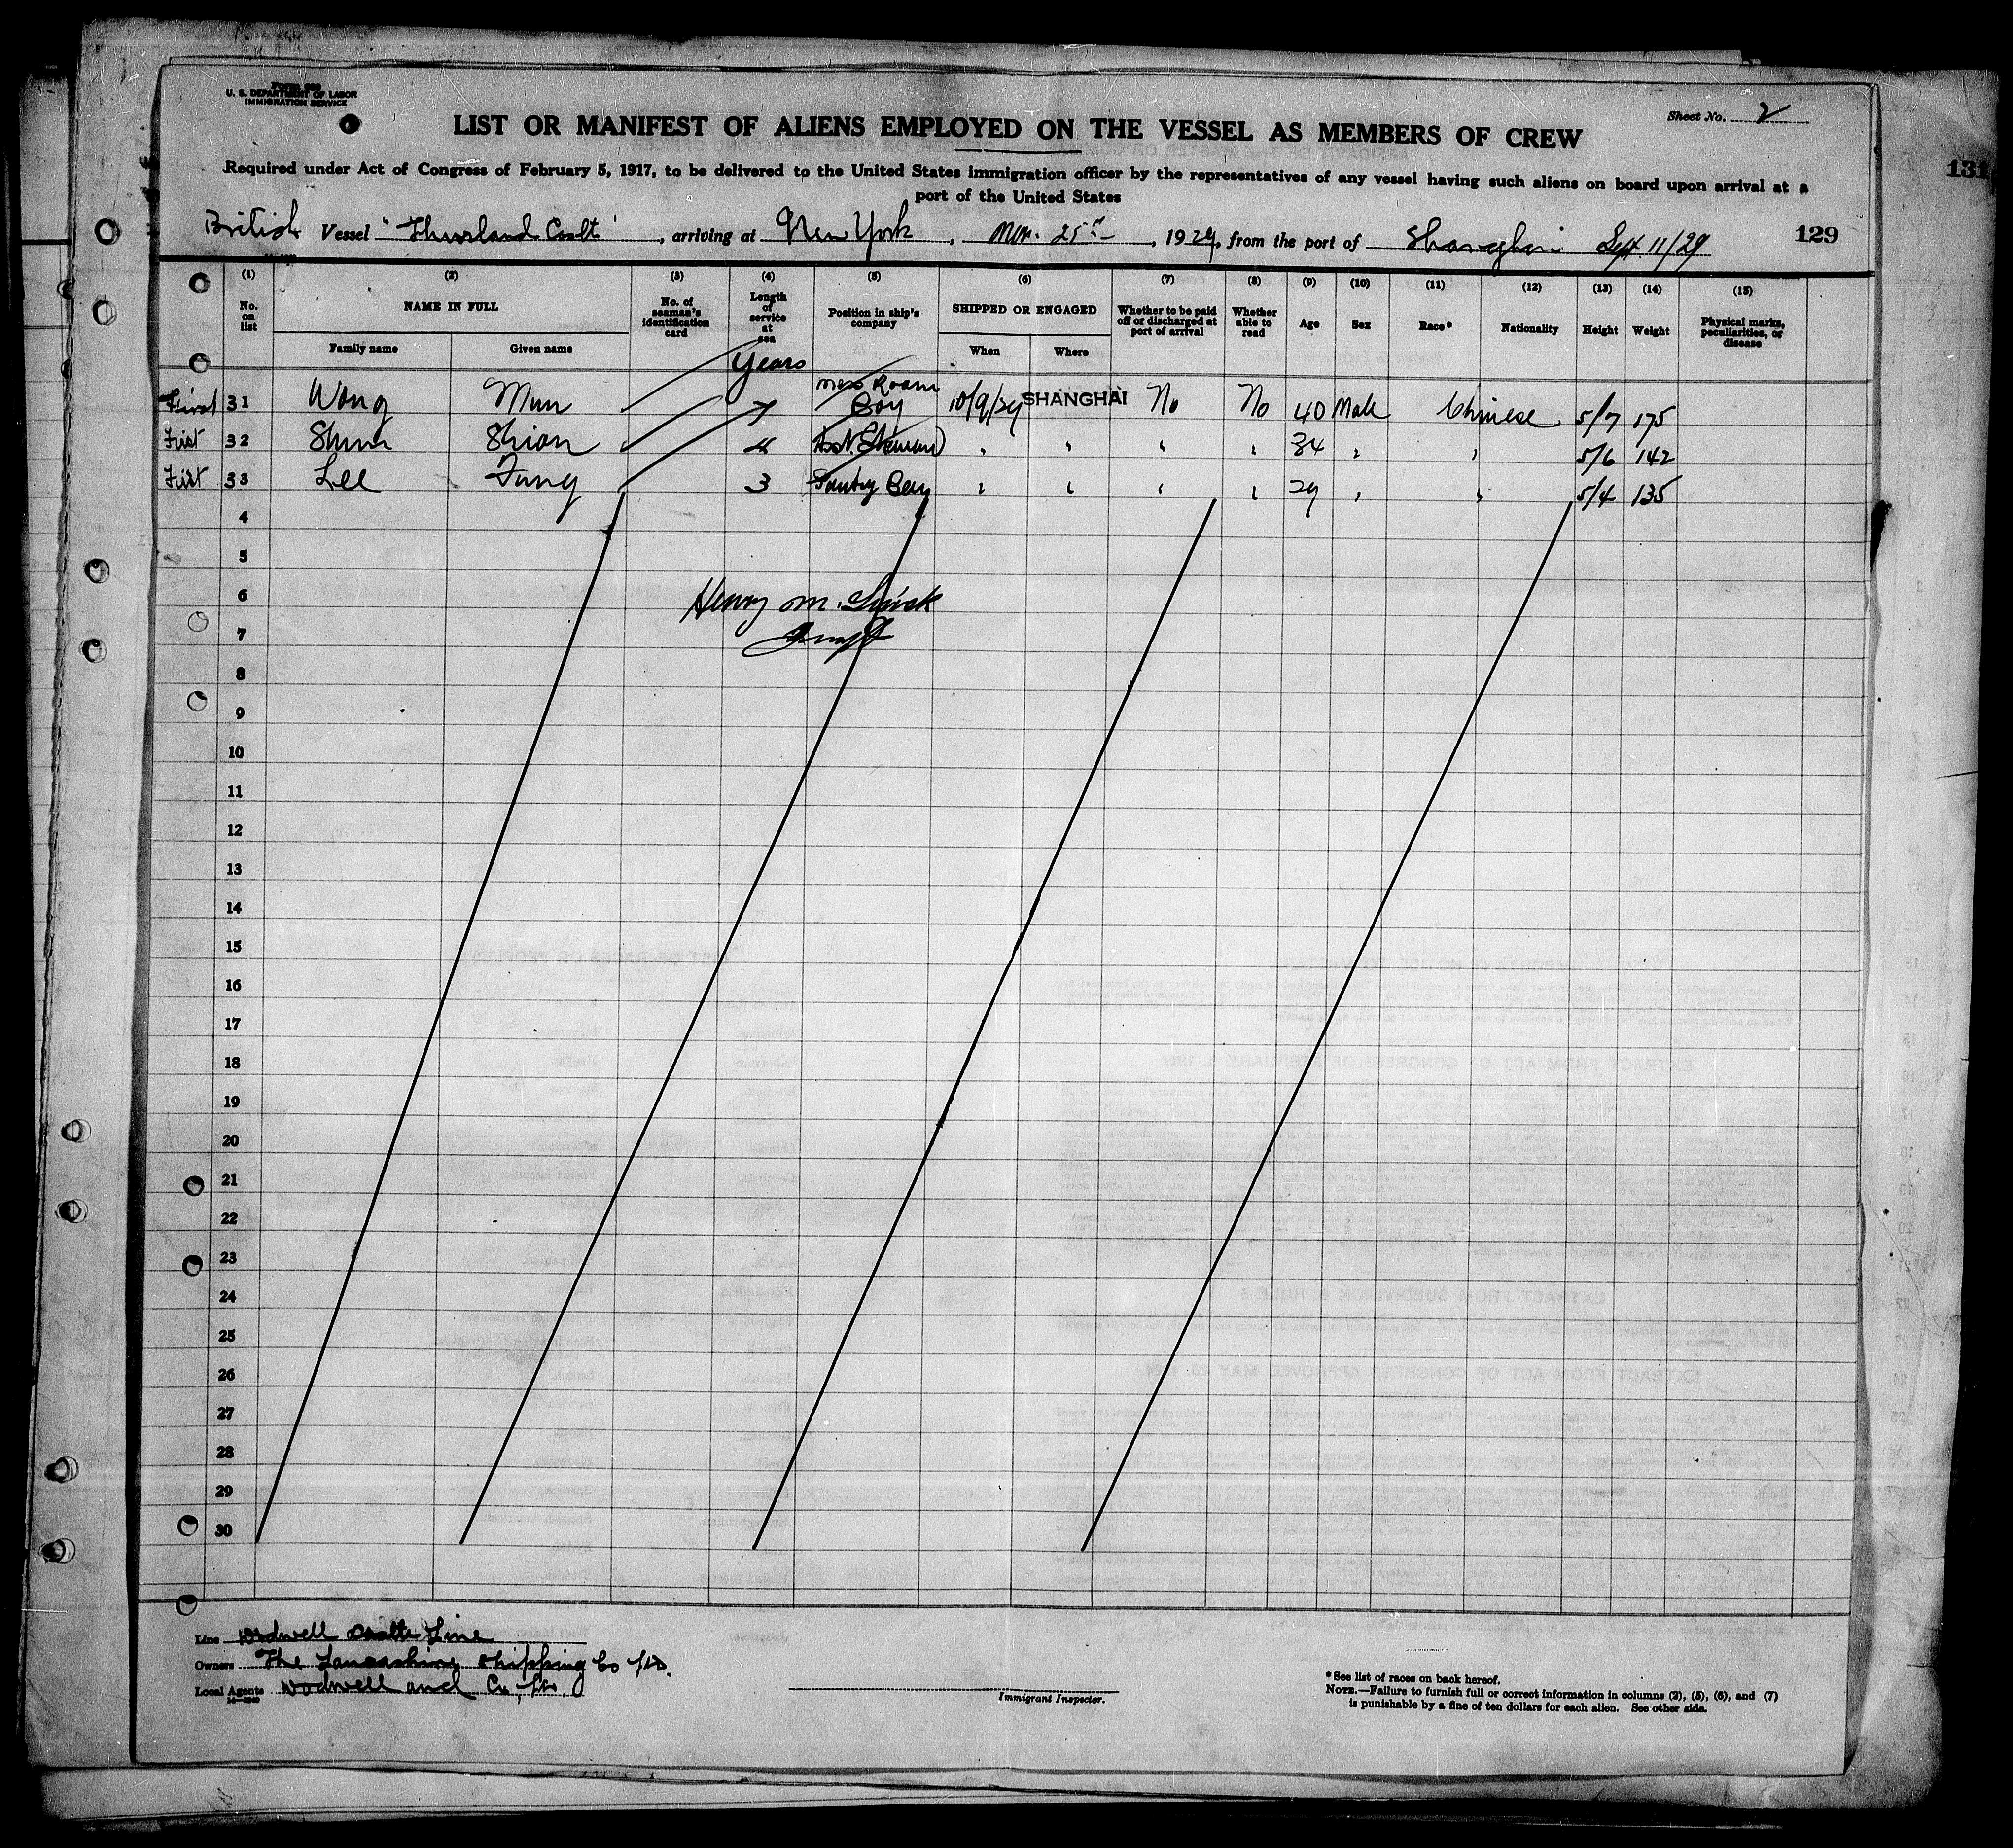 U. S. DEPARTMENT OF LABOR
IMMIGRATION SERVICE
Sheet No. 2
LIST OR MANIFEST OF ALIENS EMPLOYED ON THE VESSEL AS MEMBERS OF CREW
131
Required under Act of Congress of February 5, 1917, to be delivered to the United States immigration officer by the representatives of any vessel having such aliens on board upon arrival at a
port of the United States
British Vessel , arriving at New York , 25 , 1929, from the port of Shanghai Sept 11/29 129
(1) (2) (3) (4) (5) (6) (7) (8) (9) (10) (11) (12) (13) (14) (15)
No. on list NAME IN FULL No. of seaman's identification card Length of service at sea Position in ship's company SHIPPED OR ENGAGED Whether to be paid off or discharged at port of arrival Whether able to read Age Sex Race* Nationality Height Weight Physical marks, peculiarities, or disease
Family name Given name When Where
Years
First 31 Wong Mun 7 Mess Room Boy 10/9/29 SHANGHAI No No 40 Male Chinese 5/7 175
First 32 Shum Shian 4 Asst. Steward " " " " 34 " " 5/6 142
First 33 Lee Fung 3 Pantry Boy " " " " 29 " " 5/4 135
4
5
6
Henry M.
7
8
9
10
11
12
13
14
15
16
17
18
19
20
21
22
23
24
25
26
27
28
29
30
Line Dodwell Castle Line
Owners The Lancashire Shipping Co Ltd.
Local Agents Dodwell and Co., Ltd.
Immigrant Inspector.
*See list of races on back hereof.
NOTE.—Failure to furnish full or correct information in columns (2), (5), (6), and (7)
is punishable by a fine of ten dollars for each alien. See other side.